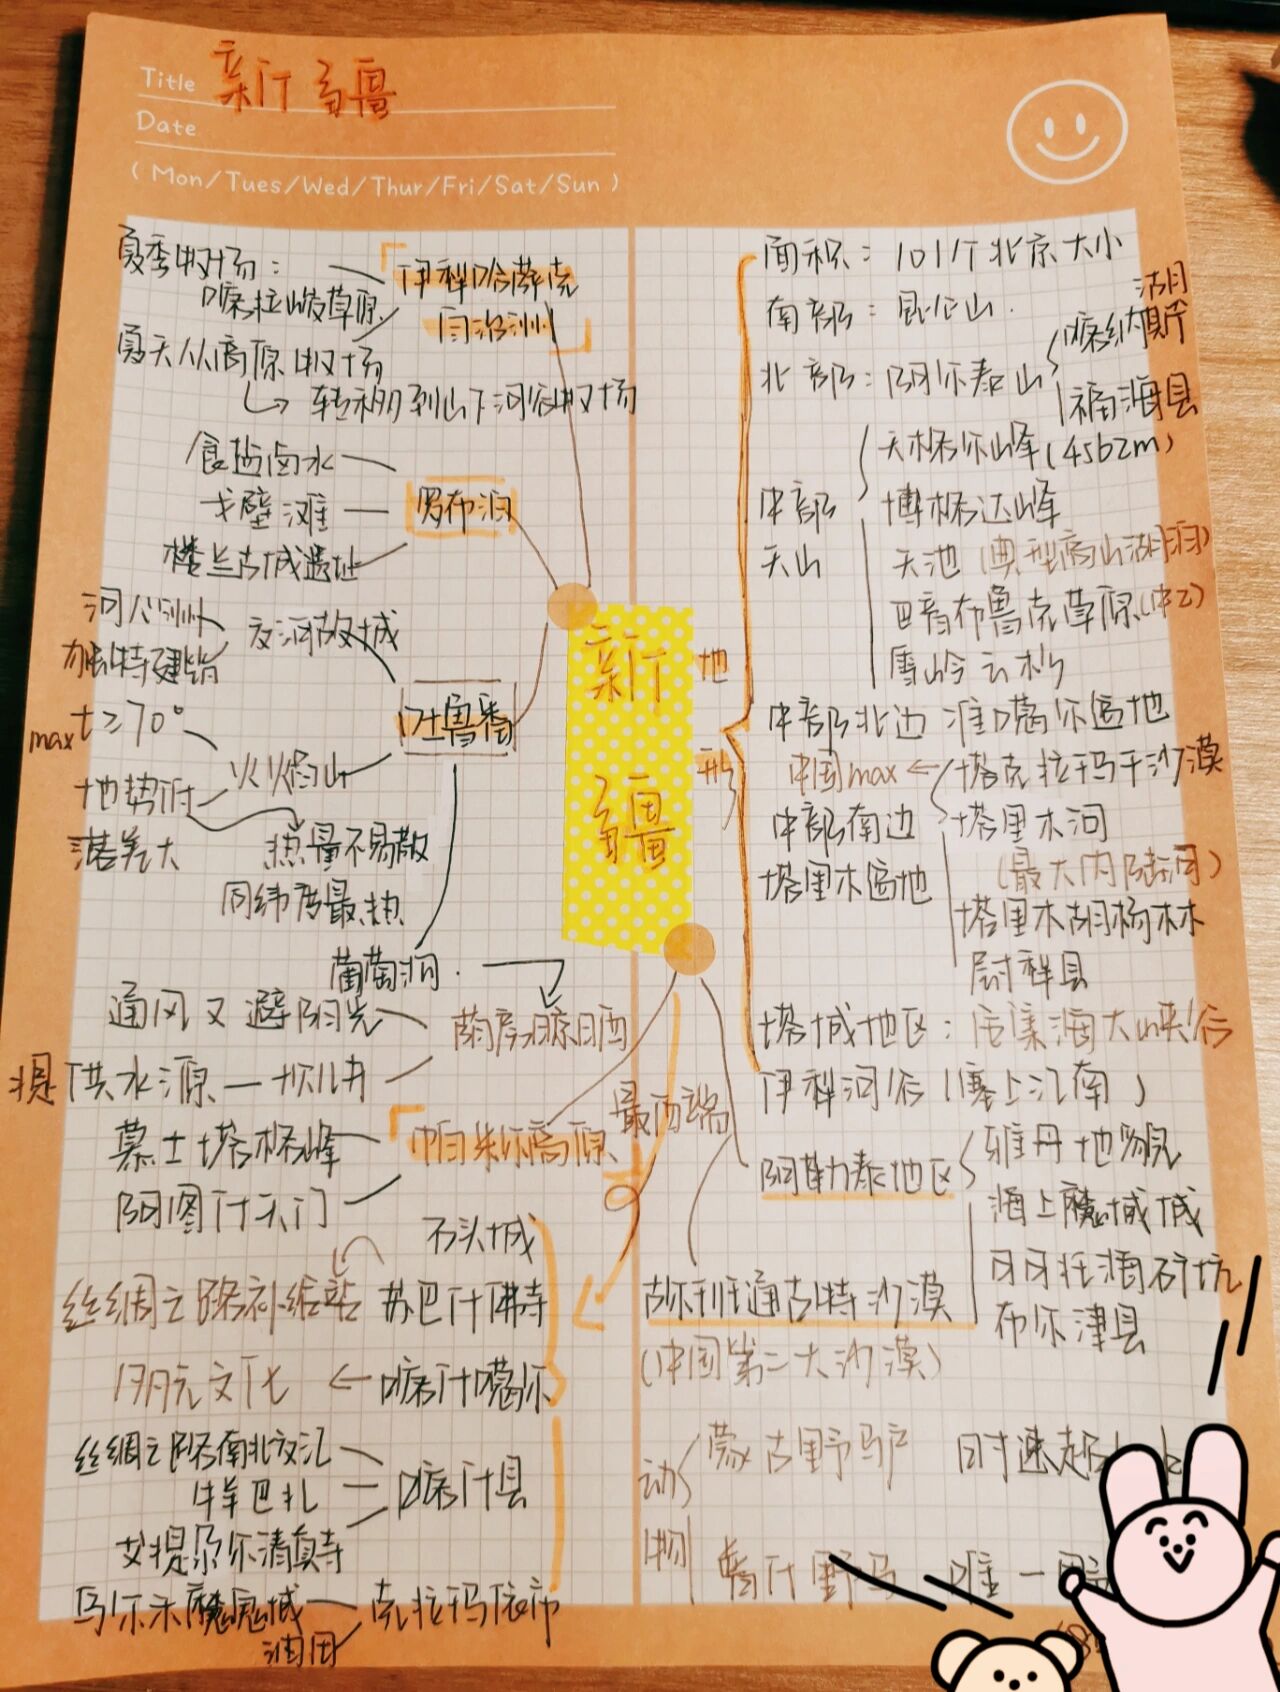 Title 新疆
Date
( Mon/Tues/Wed/Thur/Fri/Sat/Sun )
夏季牧场：
喀拉峻草原
伊犁哈萨克
自治州
夏天从高原牧场
转移到山下河谷牧场
食盐卤水
戈壁滩
罗布泊
楼兰古城遗址
河心洲
交河故城
特建筑
max t≥70°
火焰山
吐鲁番
地势低
落差大
热量不易散
同纬度最热
葡萄沟
通风又避阳光
荫房晾晒
提供水源—坎儿井
慕士塔格峰
帕米尔高原
最西端
阿图什天门
石头城
丝绸之路补给站
苏巴什佛寺
喀什噶尔
丝绸之路南北交汇
牛羊巴扎
喀什县
艾提尕尔清真寺
乌尔禾魔鬼城
克拉玛依市
油田
新疆
地形
面积：101个北京大小
南部：昆仑山
北部：阿尔泰山
喀纳斯
湖
福海县
中部
天山
天格尔山峰(4562m)
博格达峰
天池(典型高山湖泊)
巴音布鲁克草原(中2)
雪岭云杉
中部北边 准噶尔盆地
中国max
塔克拉玛干沙漠
中部南边
塔里木盆地
塔里木河
(最大内陆河)
塔里木胡杨林
尉犁县
塔城地区：
大峡谷
伊犁河谷(塞上江南)
阿勒泰地区
雅丹地貌
海上魔域城
可可托海矿坑
布尔津县
古尔班通古特沙漠
(中国第二大沙漠)
动物
蒙古野驴 时速超
野马 唯一